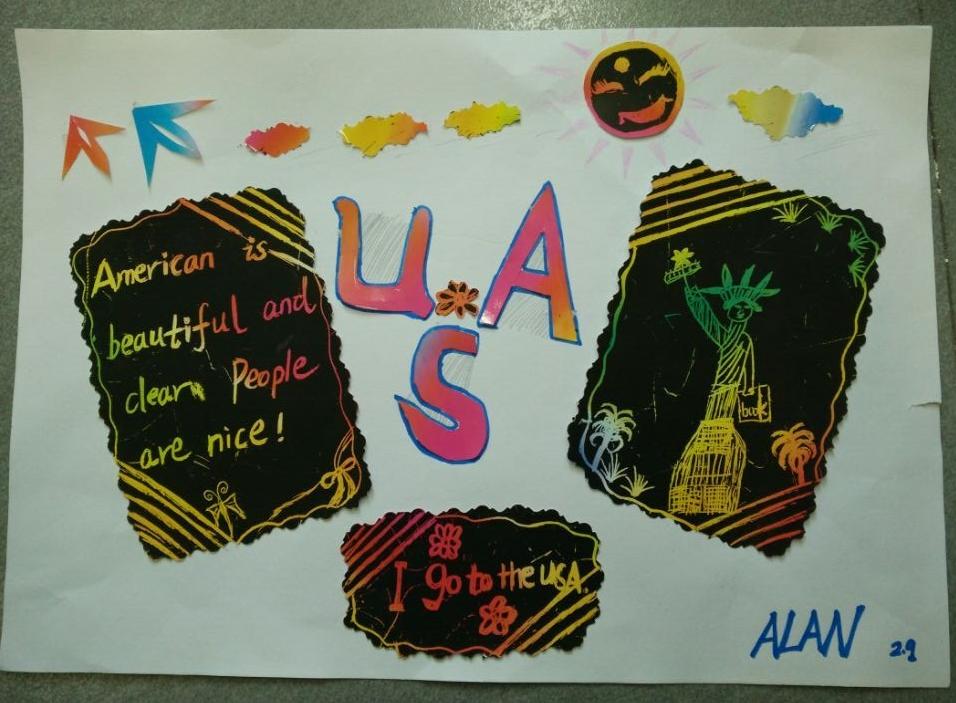 U A
S
American is
beautiful and
clean People
are nice!
book
I go to the USA.
ALAN 2.9